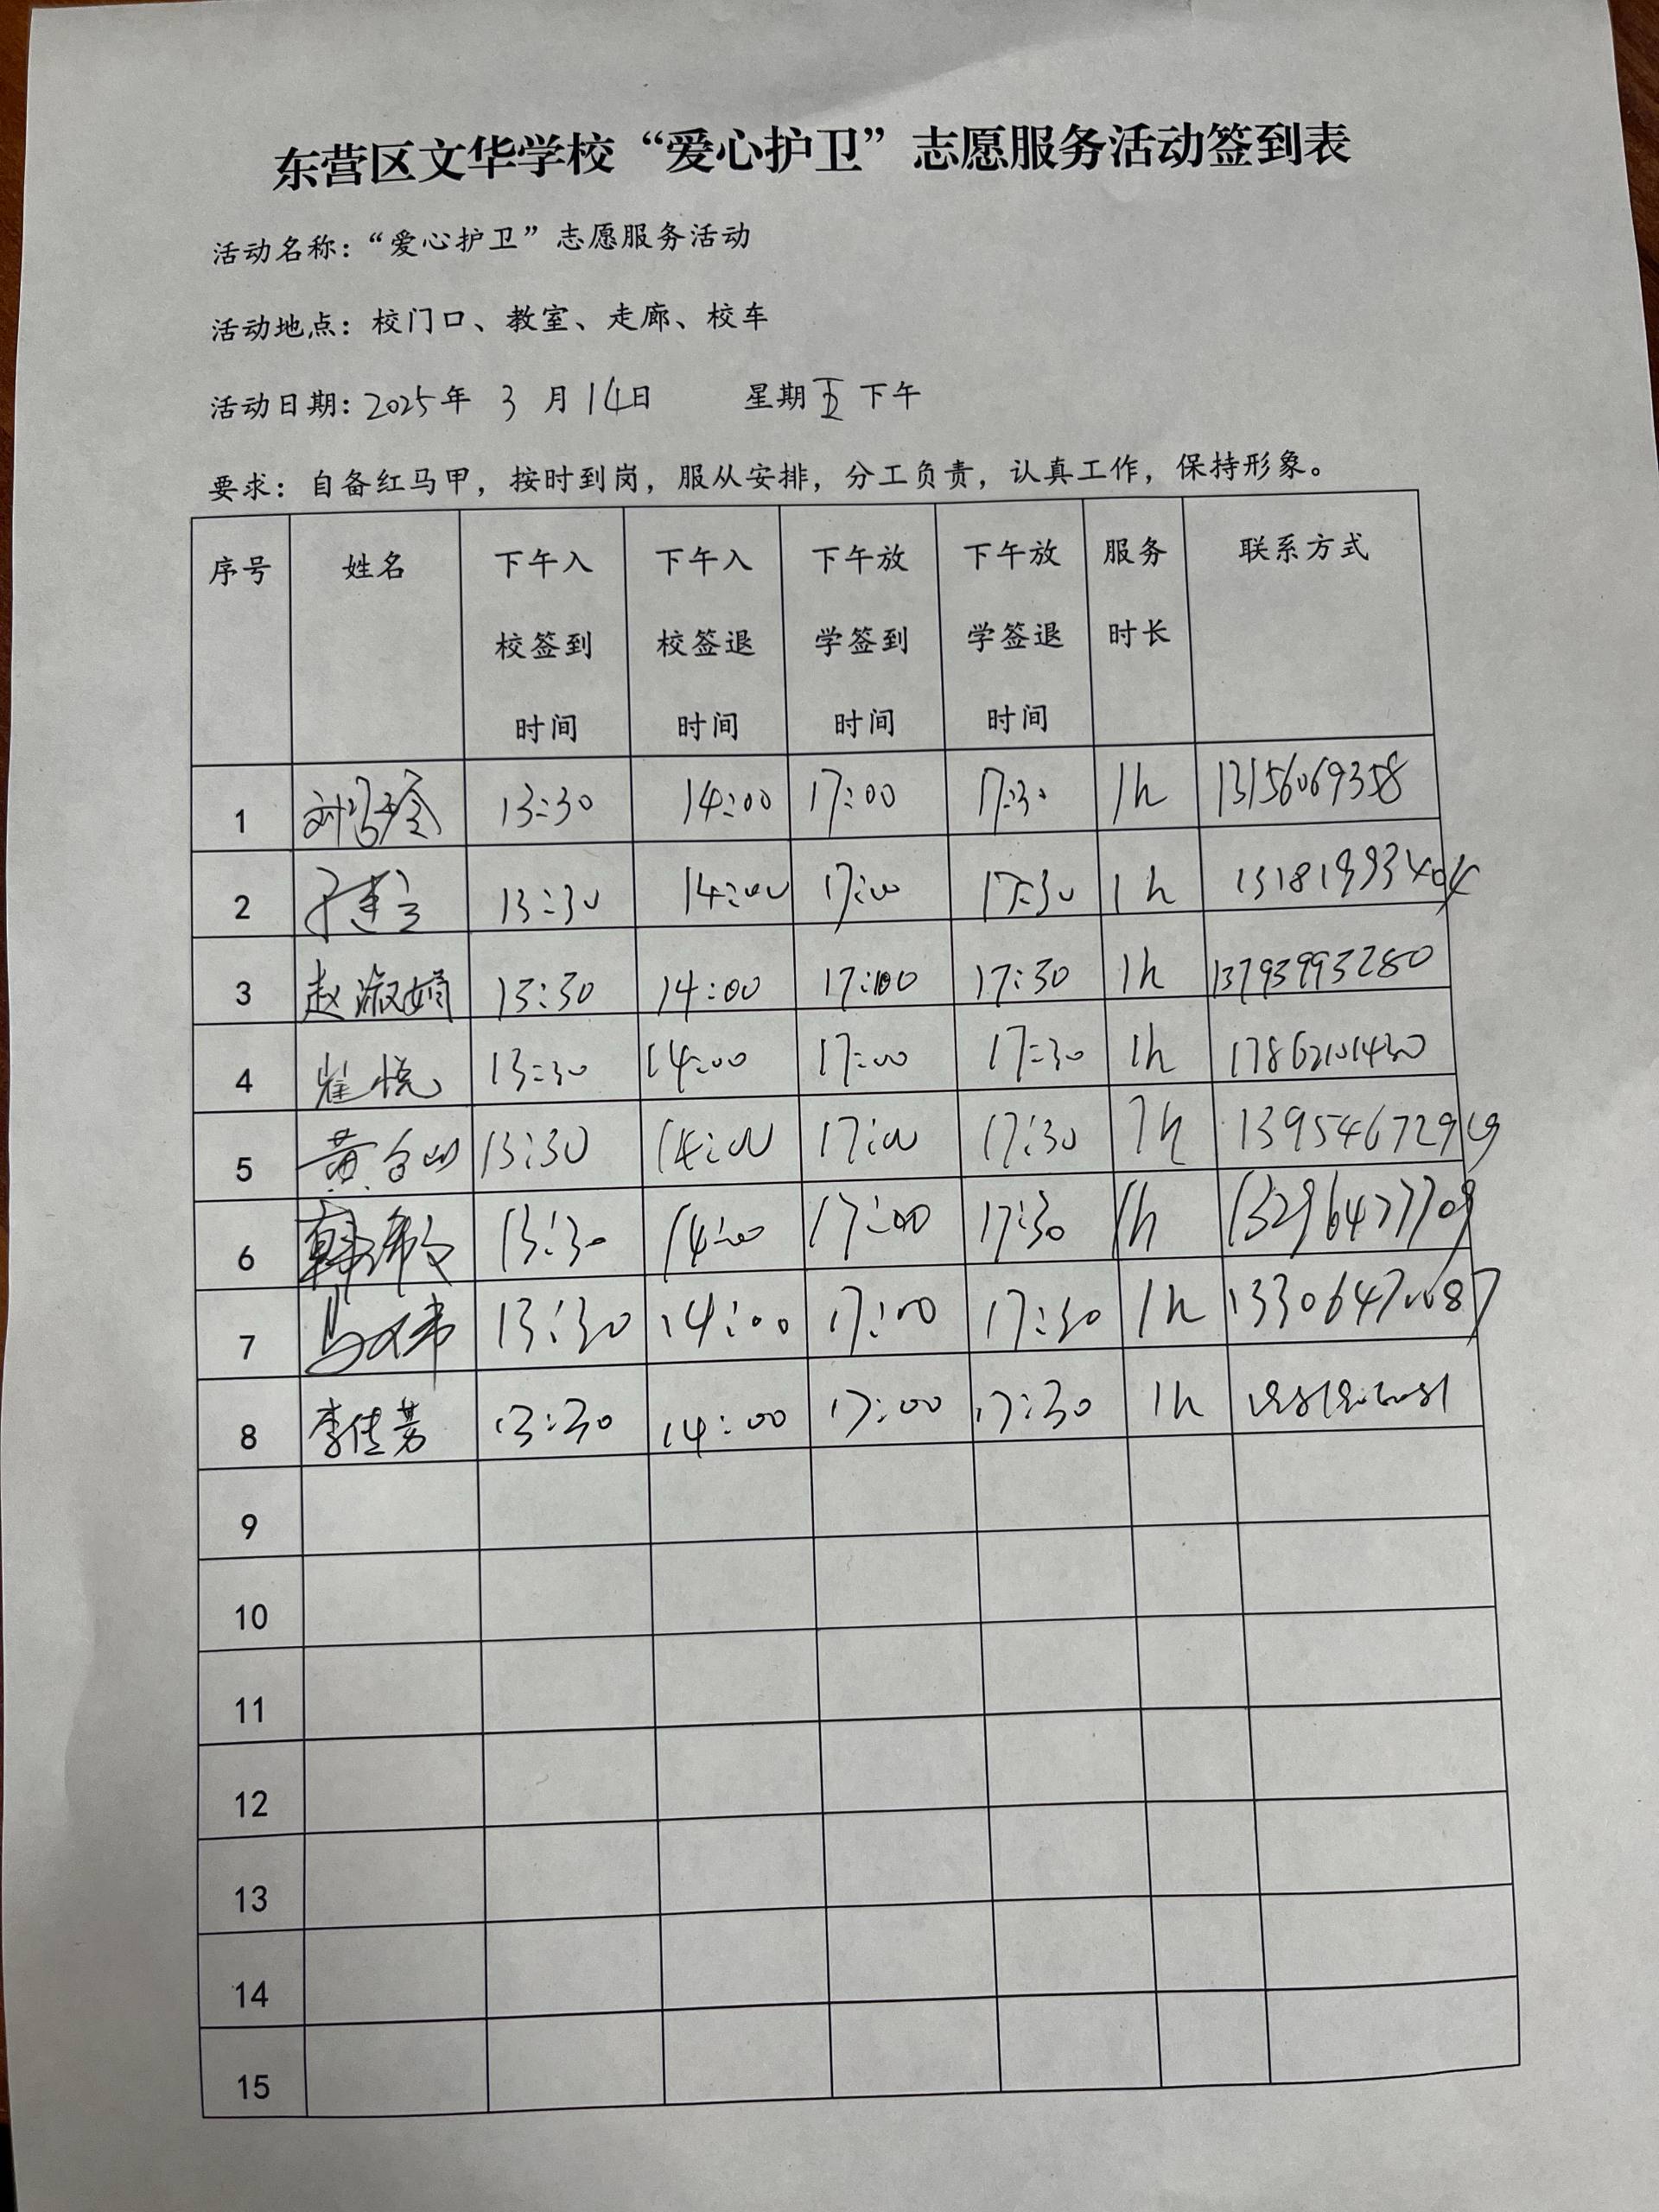 东营区文华学校“爱心护卫”志愿服务活动签到表
活动名称：“爱心护卫”志愿服务活动
活动地点：校门口、教室、走廊、校车
活动日期：2025年 3 月 14日 星期五 下午
要求：自备红马甲，按时到岗，服从安排，分工负责，认真工作，保持形象。
序号 姓名 下午入校签到时间 下午入校签退时间 下午放学签到时间 下午放学签退时间 服务时长 联系方式
1 13:30 14:00 17:00 17:30 1h 13156069358
2 13:30 14:00 17:00 17:30 1h
3 赵淑娟 13:30 14:00 17:00 17:30 1h 13793993280
4 崔悦 13:30 14:00 17:00 17:30 1h 17862101430
5 13:30 14:00 17:00 17:30 1h
6 13:30 14:00 17:00 17:30 1h 13296477709
7 13:30 14:00 17:00 17:30 1h 13306470087
8 13:30 14:00 17:00 17:30 1h
9
10
11
12
13
14
15